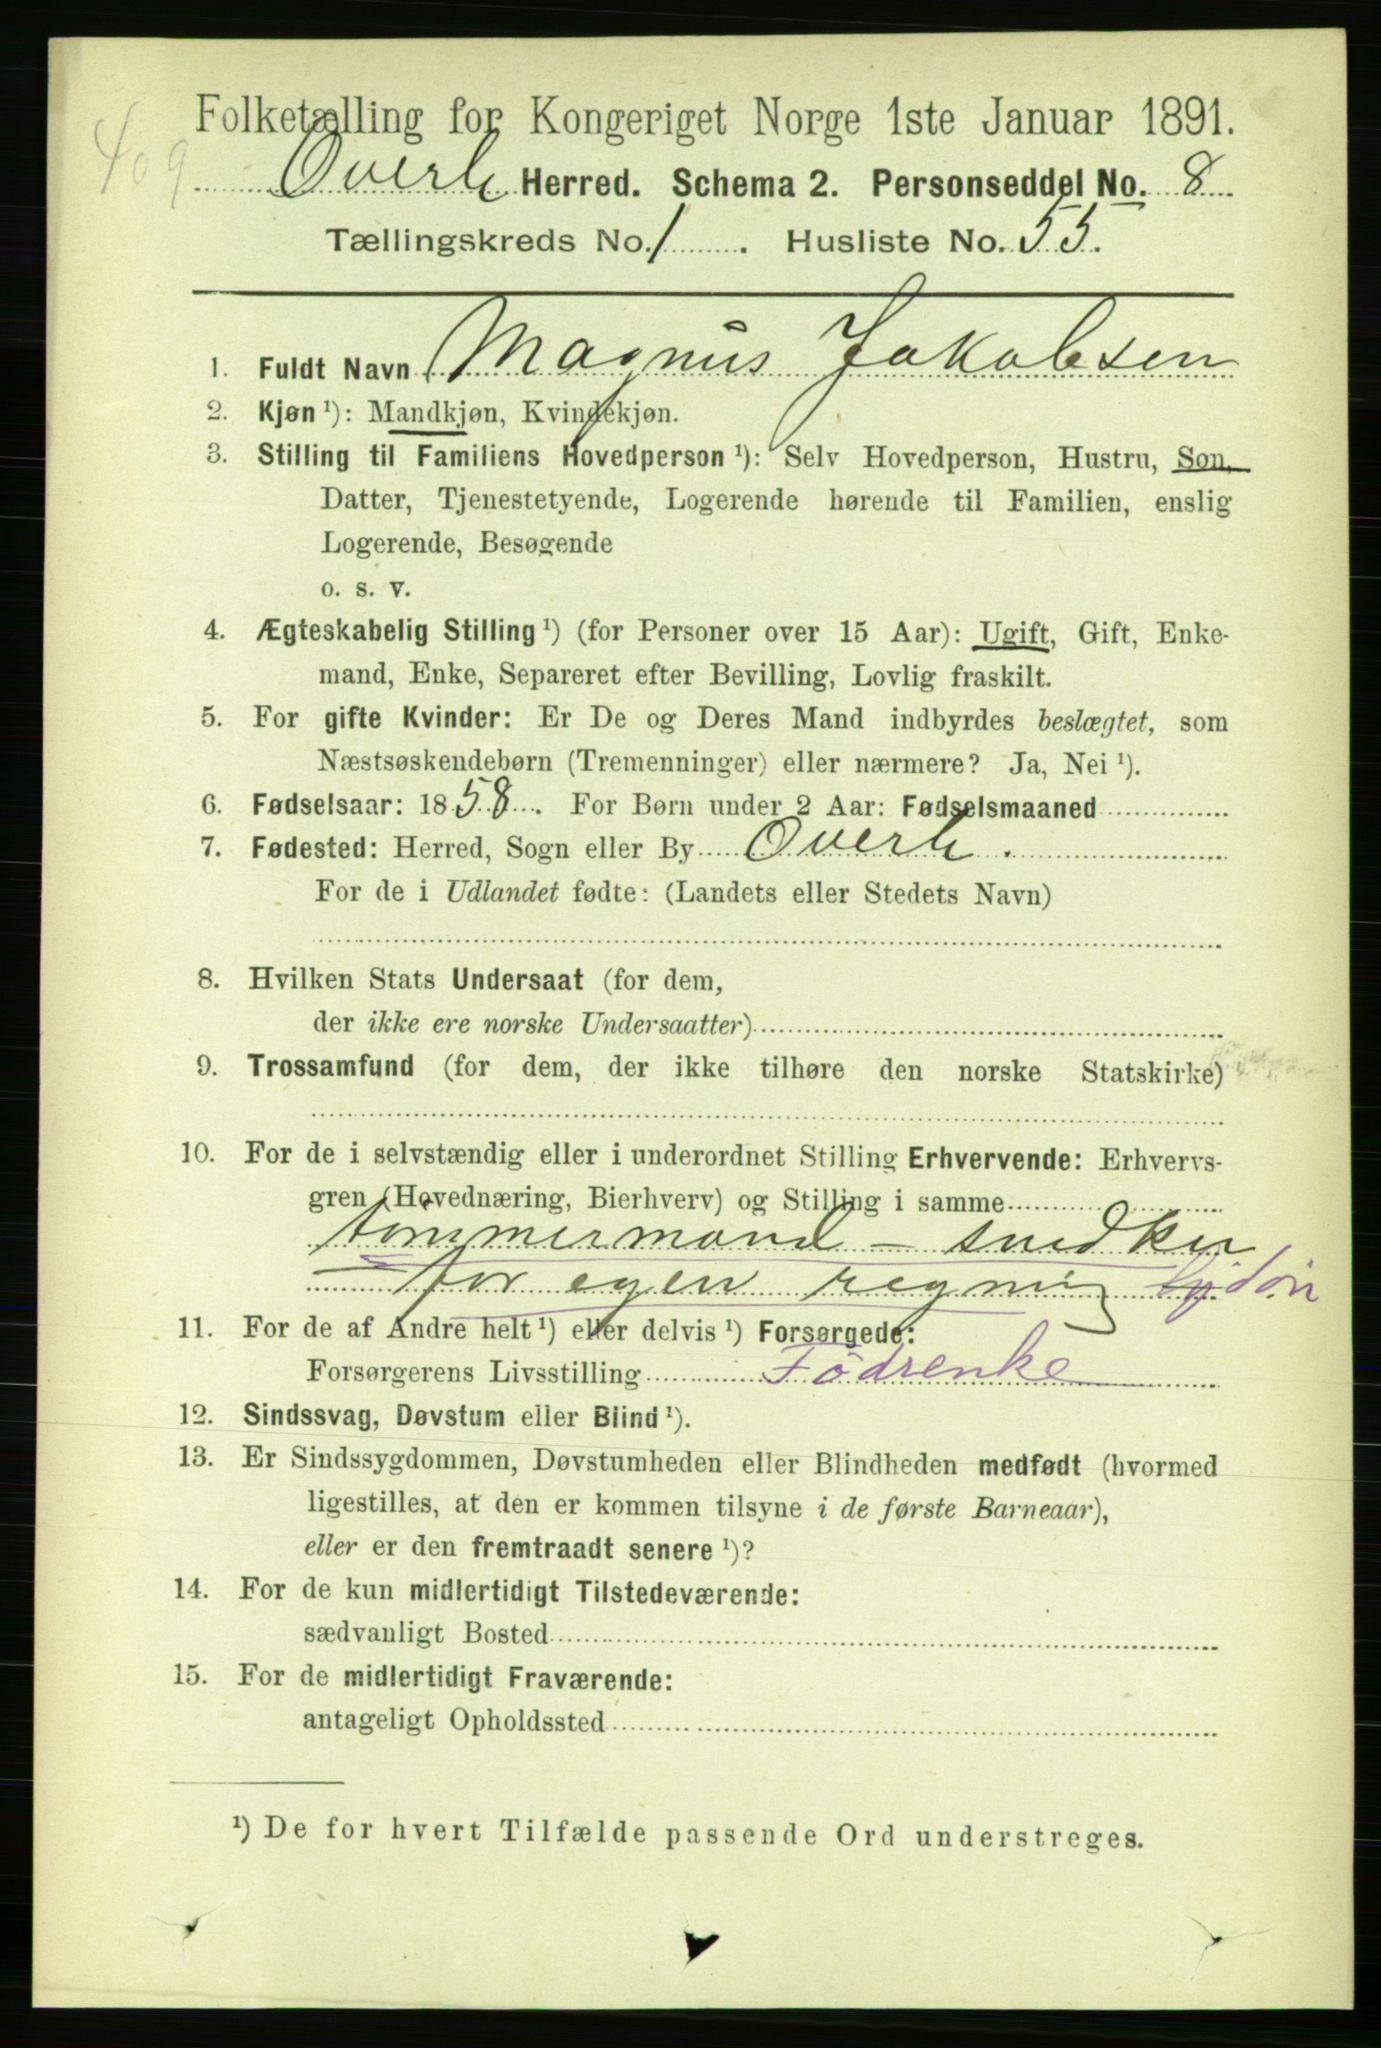 409
Folketælling for Kongeriget Norge 1ste Januar 1891.
Overh Herred. Schema 2. Personseddel No. 8
Tællingskreds No. 1. Husliste No. 55.
1. Fuldt Navn Magnus Jakobsen
2. Kjøn ¹): Mandkjøn, Kvindekjøn.
3. Stilling til Familiens Hovedperson ¹): Selv Hovedperson, Hustru, Søn,
Datter, Tjenestetyende, Logerende hørende til Familien, enslig
Logerende, Besøgende
o. s. v.
4. Ægteskabelig Stilling ¹) (for Personer over 15 Aar): Ugift, Gift, Enke-
mand, Enke, Separeret efter Bevilling, Lovlig fraskilt.
5. For gifte Kvinder: Er De og Deres Mand indbyrdes beslægtet, som
Næstsøskendebørn (Tremenninger) eller nærmere? Ja, Nei ¹).
6. Fødselsaar: 1858. For Børn under 2 Aar: Fødselsmaaned
7. Fødested: Herred, Sogn eller By Overh.
For de i Udlandet fødte: (Landets eller Stedets Navn)
8. Hvilken Stats Undersaat (for dem,
der ikke ere norske Undersaatter)
9. Trossamfund (for dem, der ikke tilhøre den norske Statskirke)
10. For de i selvstændig eller i underordnet Stilling Erhvervende: Erhvervs-
gren (Hovednæring, Bierhverv) og Stilling i samme
tømmermand - snedker
- for egen regning
11. For de af Andre helt ¹) eller delvis ¹) Forsørgede:
Forsørgerens Livsstilling Födrenke
12. Sindssvag, Døvstum eller Blind ¹).
13. Er Sindssygdommen, Døvstumheden eller Blindheden medfødt (hvormed
ligestilles, at den er kommen tilsyne i de første Barneaar),
eller er den fremtraadt senere ¹)?
14. For de kun midlertidigt Tilstedeværende:
sædvanligt Bosted
15. For de midlertidigt Fraværende:
antageligt Opholdssted
¹) De for hvert Tilfælde passende Ord understreges.